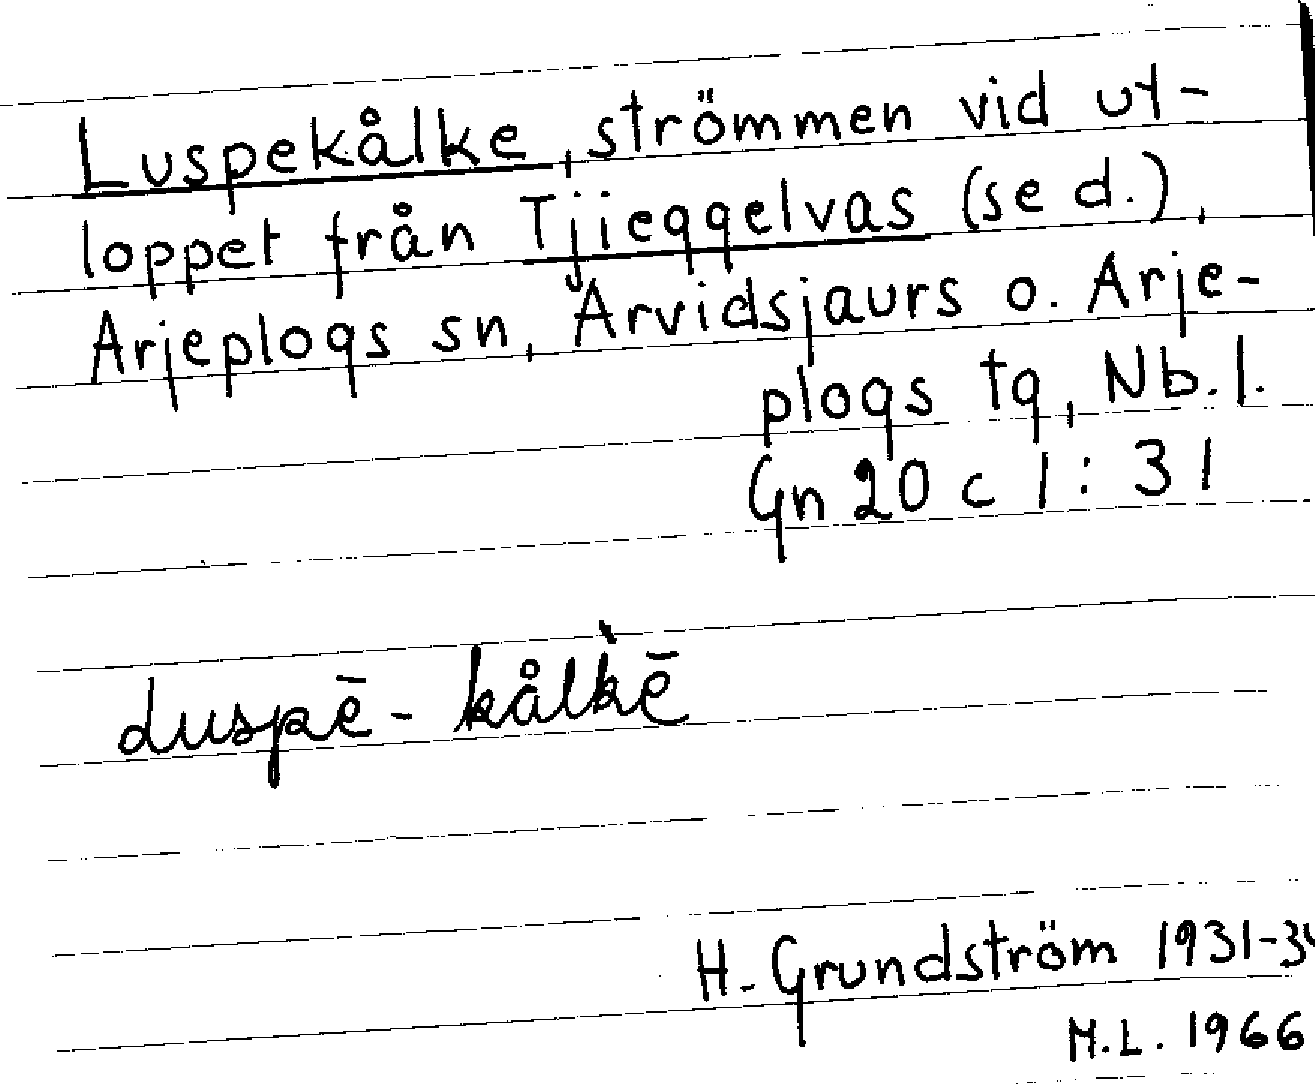 Luspekålke, strömmen vid ut-
loppet från Tjieggelvas (se d.),
Arjeplogs sn, Arvidsjaurs o. Arje-
plogs tg, Nb. l.
Gn 20 c 1 : 31
luspē - kålk̀ē
H. Grundström 1931-34
M.L. 1966